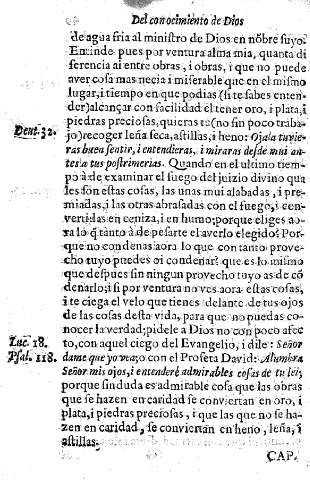 Del conocimiento de Dios
de agua fria al ministro de Dios en nõbre suyo.
Entinde pues por ventura alma mia, quanta di
ferencia ai entre obras, i obras, i que no puede
aver cosa mas necia i miserable que en el mismo
lugar, i tiempo en que podias (si te sabes enten-
der) alcançar con facilidad el tener oro, i plata, i
piedras preciosas, quieras te (no sin poco traba-
Deut. 32. jo) recoger leña seca, astillas, i heno: Ojala tuvie-
ras buen sentir, i entendieras, i miraras desde mui an-
tes a tus postrimerias. Quando en el ultimo tiem-
po à de examinar el fuego del juizio divino qua
les son estas cosas, las unas mui alabadas, i pre-
miadas, i las otras abrasadas con el fuego, i con-
vertidas en ceniza, i en humo; porque eliges ao-
ra lo q̃ tanto à de pesarte el averlo elegido? Por-
que no condenas aora lo que con tanto prove-
cho tuyo puedes oi condenar? que es lo mismo
que despues sin ningun provecho tuyo as de cõ
denarlo; i si por ventura no ves aora estas cosas,
i te ciega el velo que tienes delante de tus ojos
de las cosas desta vida, para que no puedas co-
nocer la verdad; pidele a Dios no con poco afec
Luc. 18. to, con aquel ciego del Evangelio, i dile: Señor
Psal. 118. dame que yo vea; o con el Profeta David: Alumbra
Señor mis ojos, i entenderè admirables cosas de tu lei;
porque sin duda es admirable cosa que las obras
que se hazen en caridad se conviertan en oro, i
plata, i piedras preciosas, i que las que no se ha-
zen en caridad, se conviertan en heno, leña, i
astillas.
CAP.